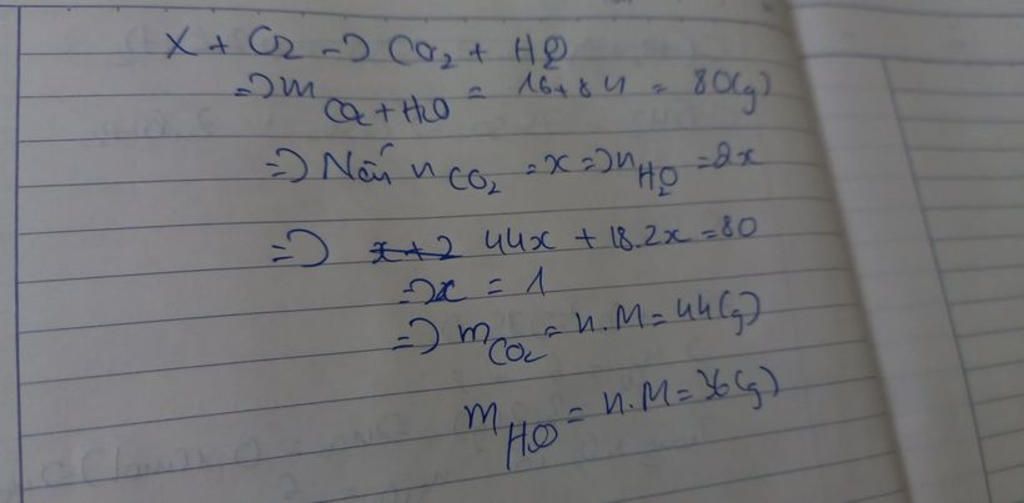 X + O2 → CO2 + H2O
=> m CO2 + H2O = 16 + 64 = 80(g)
=> Nếu n CO2 = x => n H2O = 2x
=> x + 2 44x + 18.2x = 80
=> x = 1
=> m CO2 = n.M = 44(g)
m H2O = n.M = 36(g)